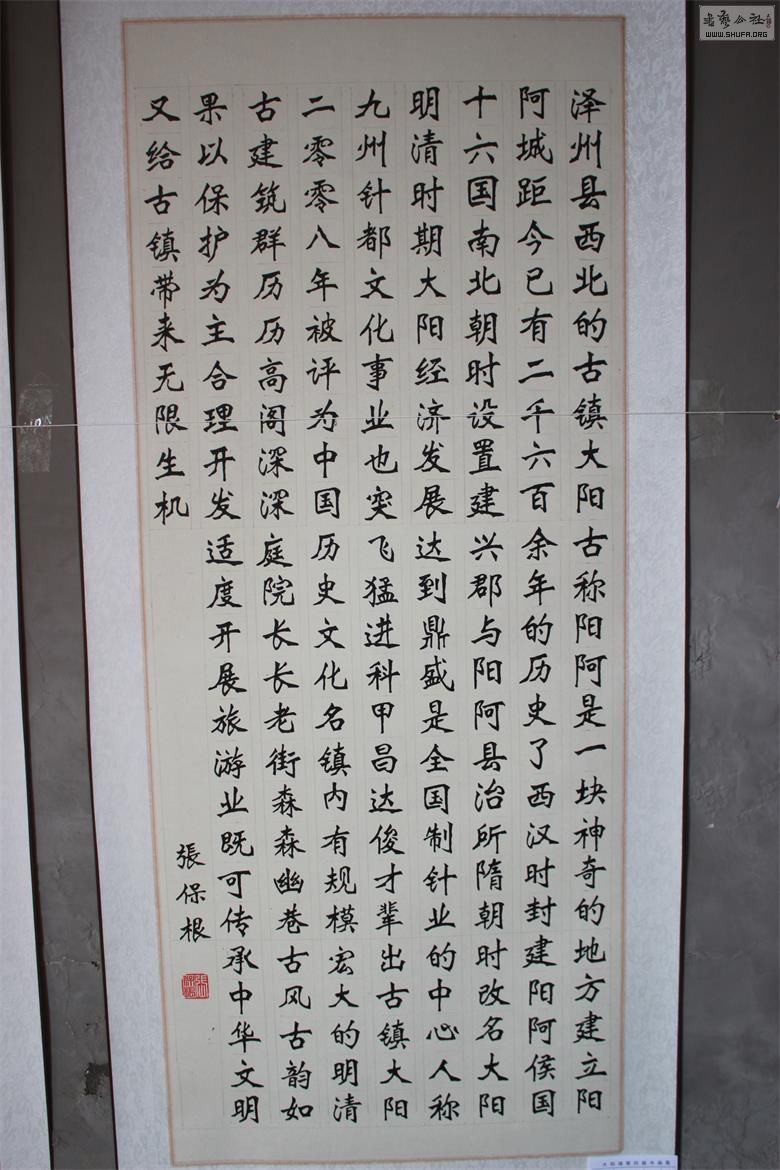 泽州县西北的古镇大阳古称阳阿是一块神奇的地方建立阳
阿城距今已有二千六百余年的历史了西汉时封建阳阿侯国
十六国南北朝时设置建兴郡与阳阿县治所隋朝时改名大阳
明清时期大阳经济发展达到鼎盛是全国制针业的中心人称
九州针都文化事业也突飞猛进科甲昌达俊才辈出古镇大阳
二零零八年被评为中国历史文化名镇内有规模宏大的明清
古建筑群历历高阁深深庭院长长老街森森幽巷古风古韵如
果以保护为主合理开发适度开展旅游业既可传承中华文明
又给古镇带来无限生机
張保根
WWW.SHUFA.ORG